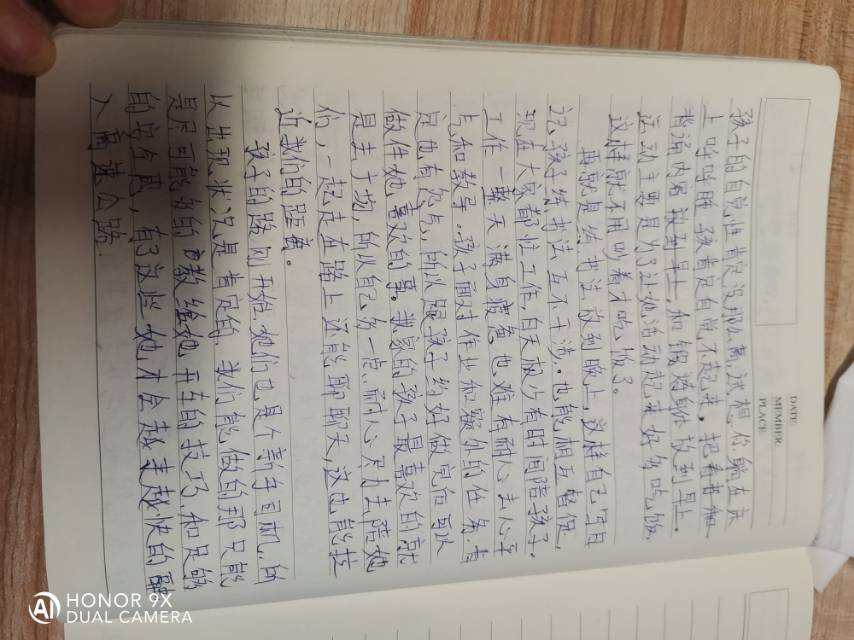 DATE
MEMBER
PLACE
孩子的自觉性肯定没那么高，试想你躺在床
上呼呼睡，孩肯定自觉不起来，把看书和
背诵内容放到早上，和锻炼都放到早上。
运动主要是为了让她活动起来好多吃饭
这样就不用吵着才吃饭了。
再就是练书法放到晚上，这样自己写日
记，孩子练书法互不干涉。也能相互督促，
现在大家都忙工作，白天极少有时间陪孩子。
工作一整天满身疲惫也难有耐心去心平
气和教导。孩子面对作业和额外的任务肯
定也有包点，所以跟孩子约好做完后可以
做件她喜欢的事。我家的孩子最喜欢的就
是去广场，所以自己多一点耐心尽力去陪她
们，一起走在路上还能聊聊天，这也能拉
近我们的距离。
孩子的路刚开始她们也是个新手司机，所
以出现状况是肯定的，我们能做的那只能
是尽可能多的教给他开车的技巧和足够
的安全感，有了这些她才会越走越快的
入高速公路.
HONOR 9X
DUAL CAMERA